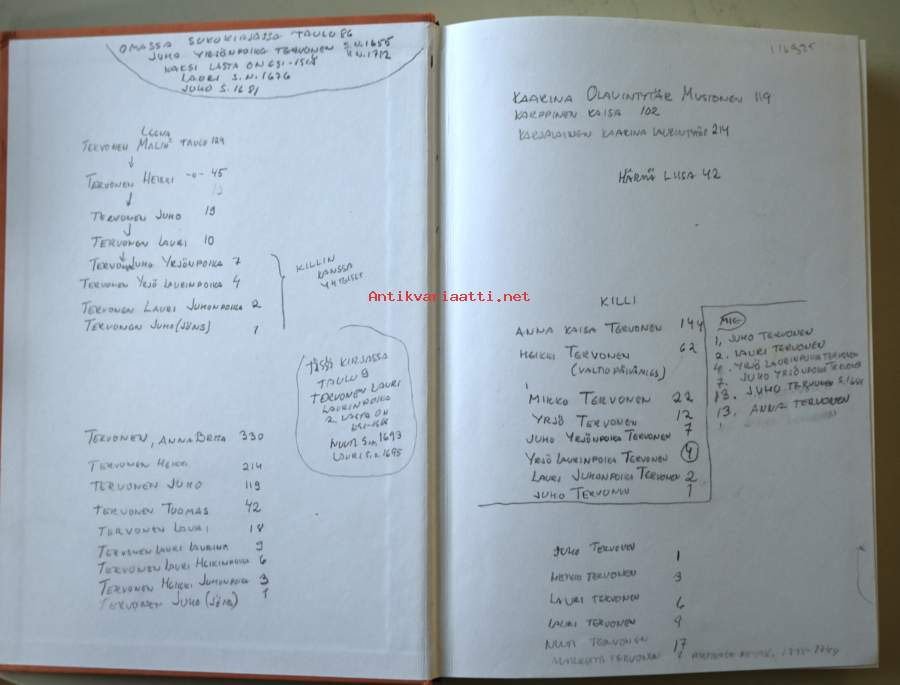 OMASSA SUKUKIRJASSA TAULU 86
JUHO YRJÖNPOIKA TERVONEN S.N.1655
K.N.1712
KAKSI LASTA ON
LAURI S.N. 1676
JUHO S. 1681
LEENA
TERVONEN MALIN TAULU 124
TERVONEN HEIKKI -"- 45
TERVONEN JUHO 19
TERVONEN LAURI 10
JUHO YRJÖNPOIKA 7
TERVONEN YRJÖ LAURINPOIKA 4
TERVONEN LAURI JUHONPOIKA 2
TERVONEN JUHO (JÖNS) 1
KILLIN
KANSSA
YHTEISET
TÄSSÄ KIRJASSA
TAULU 9
TERVONEN LAURI
LAURINPOIKA
2 LASTA ON
NUUTI S.N. 1693
LAURI S.N. 1695
TERVONEN, ANNA BRITA 330
TERVONEN HEIKKI 214
TERVONEN JUHO 119
TERVONEN TUOMAS 42
TERVONEN LAURI 18
TERVONEN LAURI LAURINP. 9
TERVONEN LAURI HEIKINPOIKA 6
TERVONEN HEIKKI JUHONPOIKA 3
TERVONEN JUHO (JÖNS) 1
KAARINA OLAVINTYTÄR MUSTONEN 119
KARPPINEN KAISA 102
KARJALAINEN KAARINA LAURINTYTÄR 214
HÄRMÄ LIISA 42
Antikvariaatti.net
KILLI
ANNA KAISA TERVONEN 144
HEIKKI TERVONEN 62
(VALTIOPÄIVÄMIES)
MIKKO TERVONEN 22
YRJÖ TERVONEN 12
JUHO YRJÖNPOIKA TERVONEN 7
YRJÖ LAURINPOIKA TERVONEN 4
LAURI JUHONPOIKA TERVONEN 2
JUHO TERVONEN 1
ME
1, JUHO TERVONEN
2. LAURI TERVONEN
4. YRJÖ LAURINPOIKA TERVONEN
7. JUHO YRJÖNPOIKA TERVONEN
13. JUHO TERVONEN
13. ANNA TERVONEN
JUHO TERVONEN 1
HEIKKI TERVONEN 3
LAURI TERVONEN 6
LAURI TERVONEN 9
NUUTI TERVONEN 17
TERVONEN